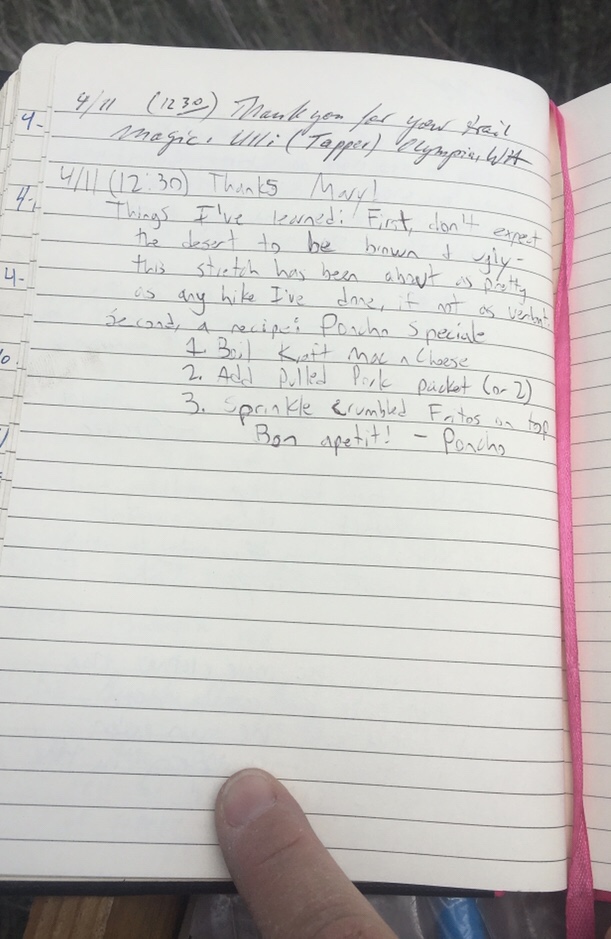 4/11 (1230) Thank you for your trail
magic. Ulli (Tapper) Olympia, WA
4/11 (12:30) Thanks Mary!
Things I've learned: First, don't expect
the desert to be brown & ugly-
this stretch has been about as pretty
as any hike I've done, if not as verdant.
Second, a recipe: Poncho Speciale
1. Boil Kraft Mac n Cheese
2. Add pulled Pork packet (or 2)
3. Sprinkle crumbled Fritos on top
Bon apetit! - Poncho
4-
4-
4-